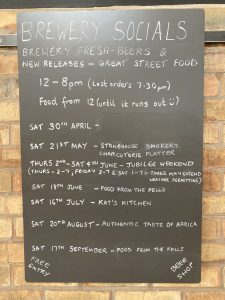 BREWERY SOCIALS
BREWERY FRESH-BEERS &
NEW RELEASES + GREAT STREET FOOD
12-8pm (Last orders 7.30pm)
Food from 12 (until it runs out ☺)
SAT 30TH APRIL -
SAT 21ST MAY - STONEHOUSE SMOKERY
CHARCUTERIE PLATTER
THURS 2ND - SAT 4TH JUNE - JUBILEE WEEKEND
(THURS - 2-7, FRIDAY 2-7 & SAT 1-7 - TIMES MAY EXTEND
WEATHER PERMITTING)
SAT 18TH JUNE - FOOD FROM THE FELLS
SAT 16TH JULY - KAT'S KITCHEN
SAT 20TH AUGUST - AUTHENTIC TASTE OF AFRICA
SAT 17TH SEPTEMBER - FOOD FROM THE FELLS
FREE
ENTRY
BEER
SHOP